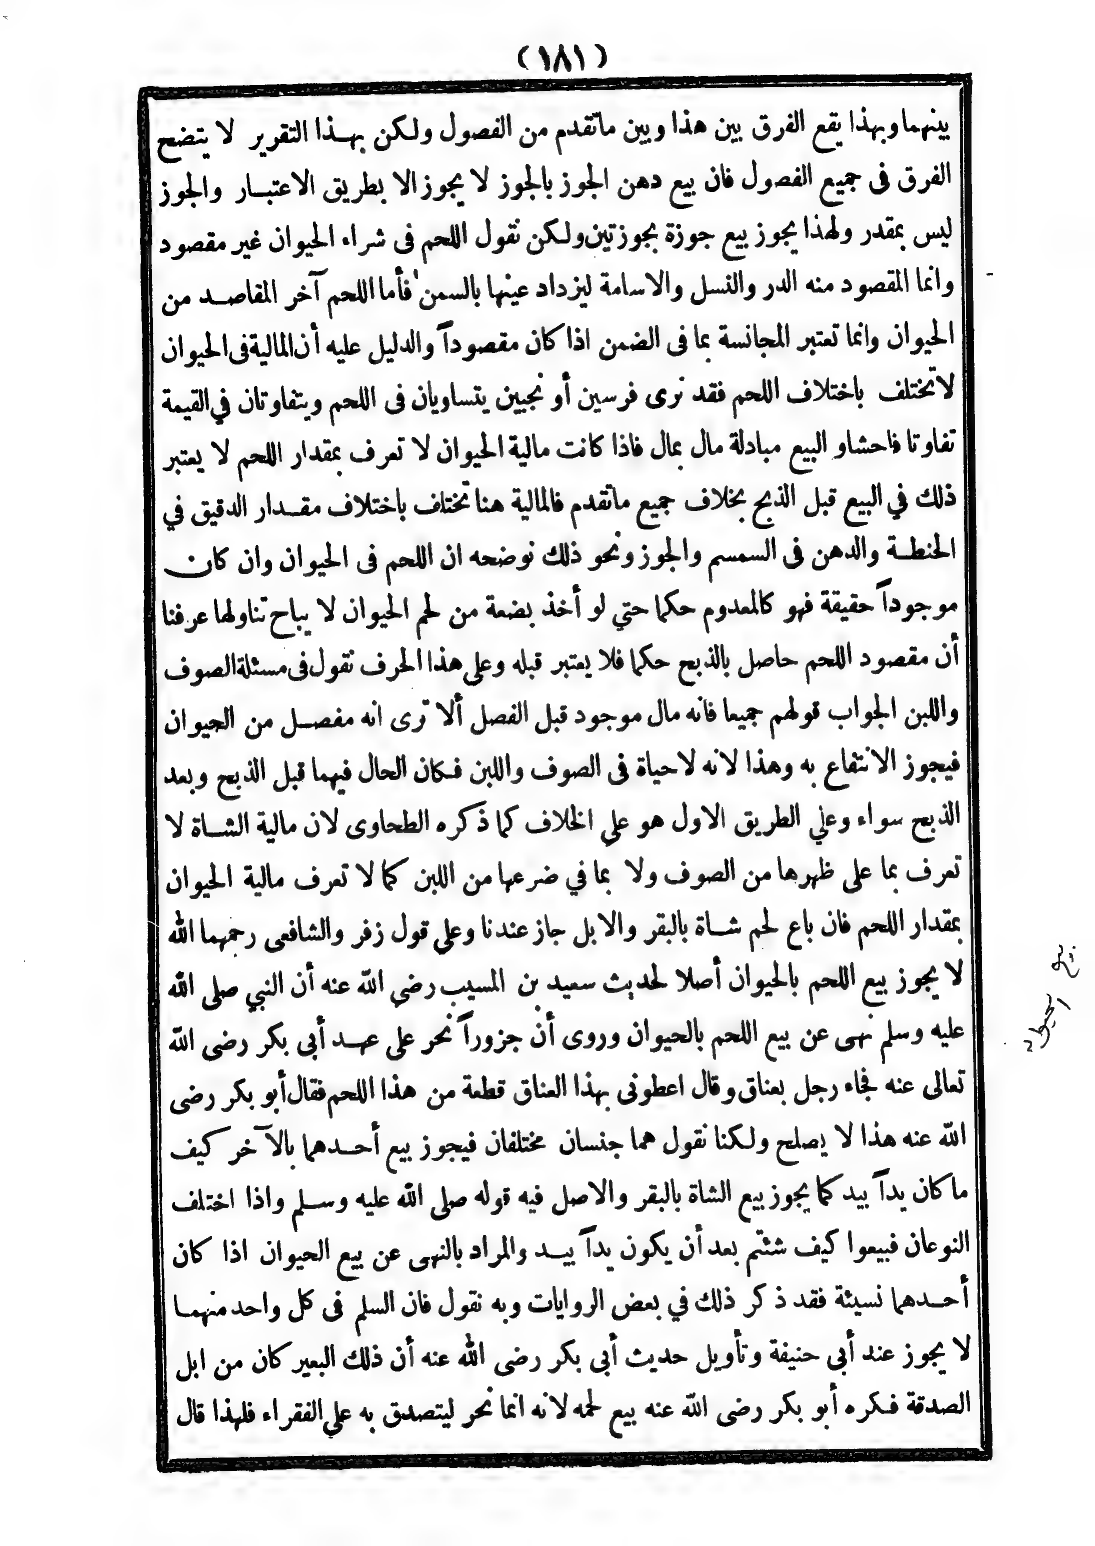 (١٨١)
بينهما وبهذا يقع الفرق بين هذا وبين ماتقدم من الفصول ولكن بهذا التقرير لا يتضح
الفرق فى جميع الفصول فان بيع دهن الجوز بالجوز لا يجوز الا بطريق الاعتبار والجوز
ليس بمقدر ولهذا يجوز بيع جوزة بجوزتين ولكن نقول اللحم فى شراء الحيوان غير مقصود
وانما المقصود منه الدر والنسل والاسامة ليزداد عينها بالسمن فأما اللحم آخر المقاصد من
الحيوان وانما تعتبر المجانسة بما فى الضمن اذا كان مقصوداً والدليل عليه أن المالية فى الحيوان
لا تختلف باختلاف اللحم فقد نرى فرسين أو نجيبين يتساويان فى اللحم ويتفاوتان في القيمة
تفاوتا فاحشا و البيع مبادلة مال بمال فاذا كانت مالية الحيوان لا تعرف بمقدار اللحم لا يعتبر
ذلك في البيع قبل الذبح بخلاف جميع ماتقدم فالمالية هنا تختلف باختلاف مقدار الدقيق في
الحنطة والدهن فى السمسم والجوز ونحو ذلك نوضحه ان اللحم فى الحيوان وان كان
موجوداً حقيقة فهو كالمعدوم حكما حتي لو أخذ بضعة من لحم الحيوان لا يباح تناولها عرفنا
أن مقصود اللحم حاصل بالذبح حكما فلا يعتبر قبله وعلى هذا الحرف نقول فى مسئلة الصوف
واللبن الجواب قولهم جميعا فانه مال موجود قبل الفصل ألا ترى انه مفصل من الحيوان
فيجوز الانتفاع به وهذا لانه لاحياة فى الصوف واللبن فكان الحال فيهما قبل الذبح وبعد
الذبح سواء وعلي الطريق الاول هو علي الخلاف كما ذكره الطحاوى لان مالية الشاة لا
تعرف بما على ظهرها من الصوف ولا بما في ضرعها من اللبن كما لا تعرف مالية الحيوان
بمقدار اللحم فان باع لحم شاة بالبقر والابل جاز عندنا وعلي قول زفر والشافعى رحمهما الله
لا يجوز بيع اللحم بالحيوان أصلا لحديث سعيد بن المسيب رضي الله عنه أن النبي صلى الله
عليه وسلم نهى عن بيع اللحم بالحيوان وروى أن جزوراً نحر على عهد أبى بكر رضى الله
تعالى عنه فجاء رجل بعناق وقال اعطونى بهذا العناق قطعة من هذا اللحم فقال أبو بكر رضى
الله عنه هذا لا يصلح ولكنا نقول هما جنسان مختلفان فيجوز بيع أحدهما بالآخر كيف
ما كان يداً بيد كما يجوز بيع الشاة بالبقر والاصل فيه قوله صلى الله عليه وسلم واذا اختلف
النوعان فبيعوا كيف شئتم بعد أن يكون يداً بيد والمراد بالنهى عن بيع الحيوان اذا كان
أحدهما نسيئة فقد ذكر ذلك في بعض الروايات وبه نقول فان السلم فى كل واحد منهما
لا يجوز عند أبى حنيفة وتأويل حديث أبى بكر رضى الله عنه أن ذلك البعير كان من ابل
الصدقة فكره أبو بكر رضى الله عنه بيع لحمه لانه انما نحر ليتصدق به علي الفقراء فلهذا قال
بيع